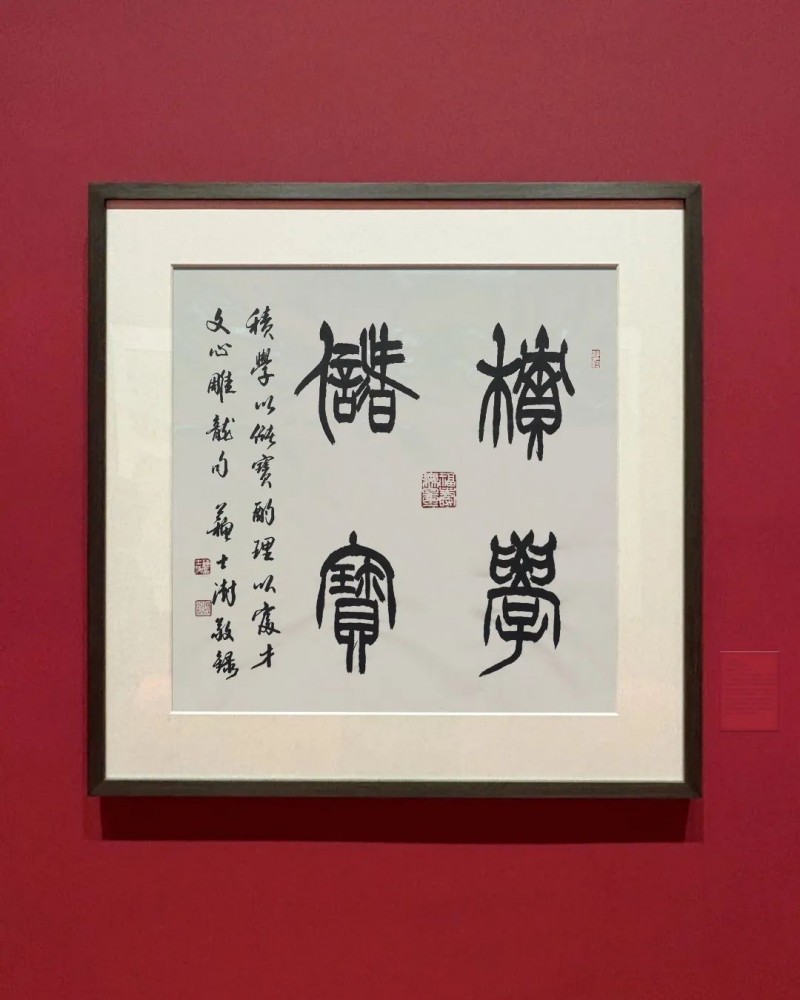 積學
儲寶
福壽無量
積學以儲寶酌理以富才
文心雕龍句 蘇士澍敬錄